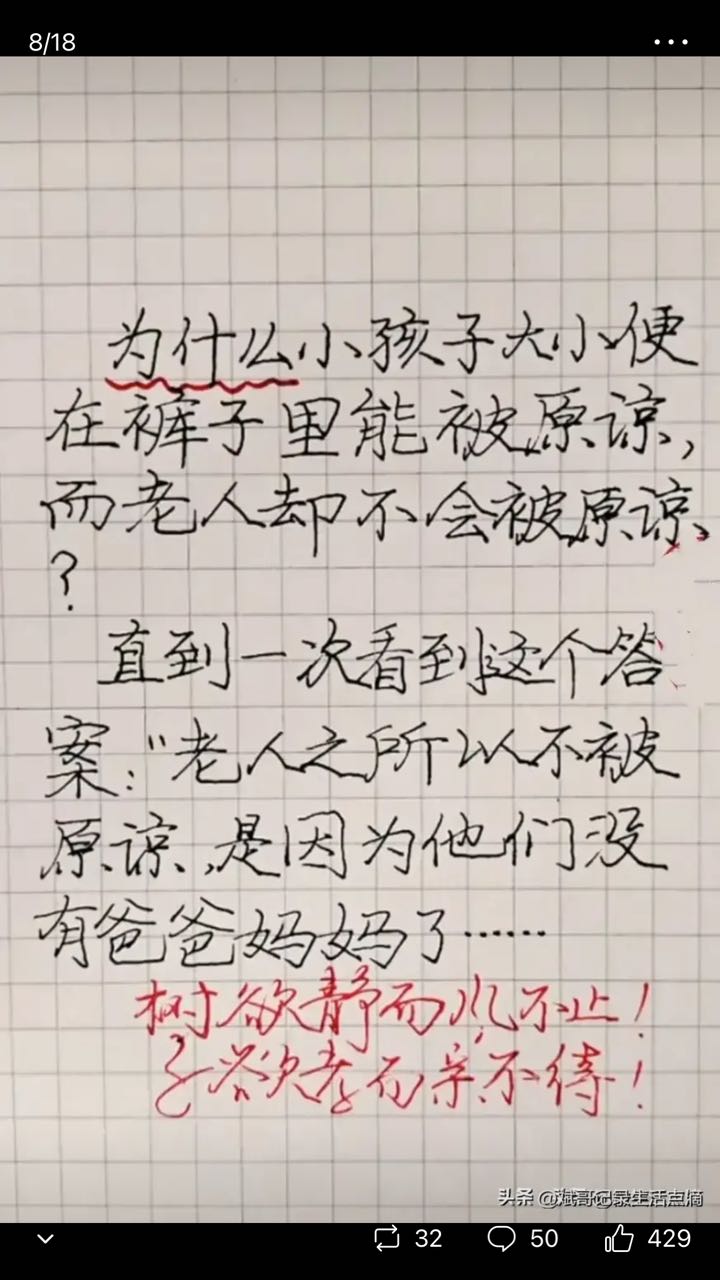 8/18
为什么小孩子大小便
在裤子里能被原谅，
而老人却不会被原谅、
？
直到一次看到这个答
案："老人之所以不被
原谅，是因为他们没
有爸爸妈妈了……
树欲静而风不止！
子欲孝而亲不待！
头条 @斌哥记录生活点滴
32 50 429